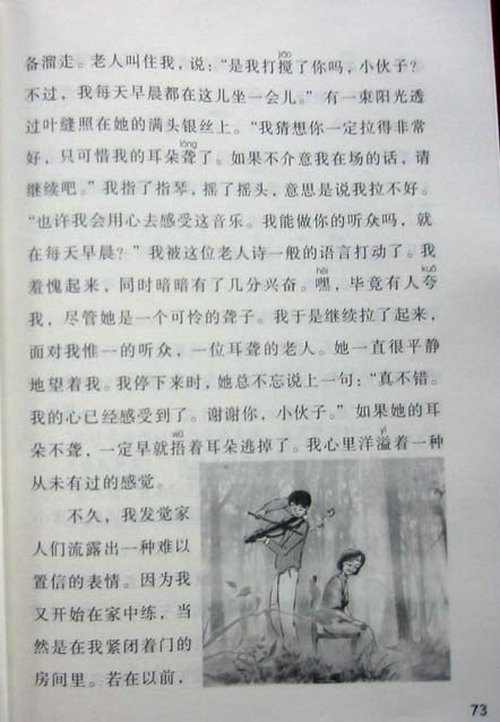 备溜走。老人叫住我，说：“是我打搅了你吗，小伙子？
不过，我每天早晨都在这儿坐一会儿。”有一束阳光透
过叶缝照在她的满头银丝上。“我猜想你一定拉得非常
好，只可惜我的耳朵聋了。如果不介意我在场的话，请
继续吧。”我指了指琴，摇了摇头，意思是说我拉不好。
“也许我会用心去感受这音乐。我能做你的听众吗，就
在每天早晨？”我被这位老人诗一般的语言打动了。我
羞愧起来，同时暗暗有了几分兴奋。嘿，毕竟有人夸
我，尽管她是一个可怜的聋子。我于是继续拉了起来，
面对我惟一的听众，一位耳聋的老人。她一直很平静
地望着我。我停下来时，她总不忘说上一句：“真不错。
我的心已经感受到了。谢谢你，小伙子。”如果她的耳
朵不聋，一定早就捂着耳朵逃掉了。我心里洋溢着一种
从未有过的感觉。
不久，我发觉家
人们流露出一种难以
置信的表情。因为我
又开始在家中练，当
然是在我紧闭着门的
房间里。若在以前，
73